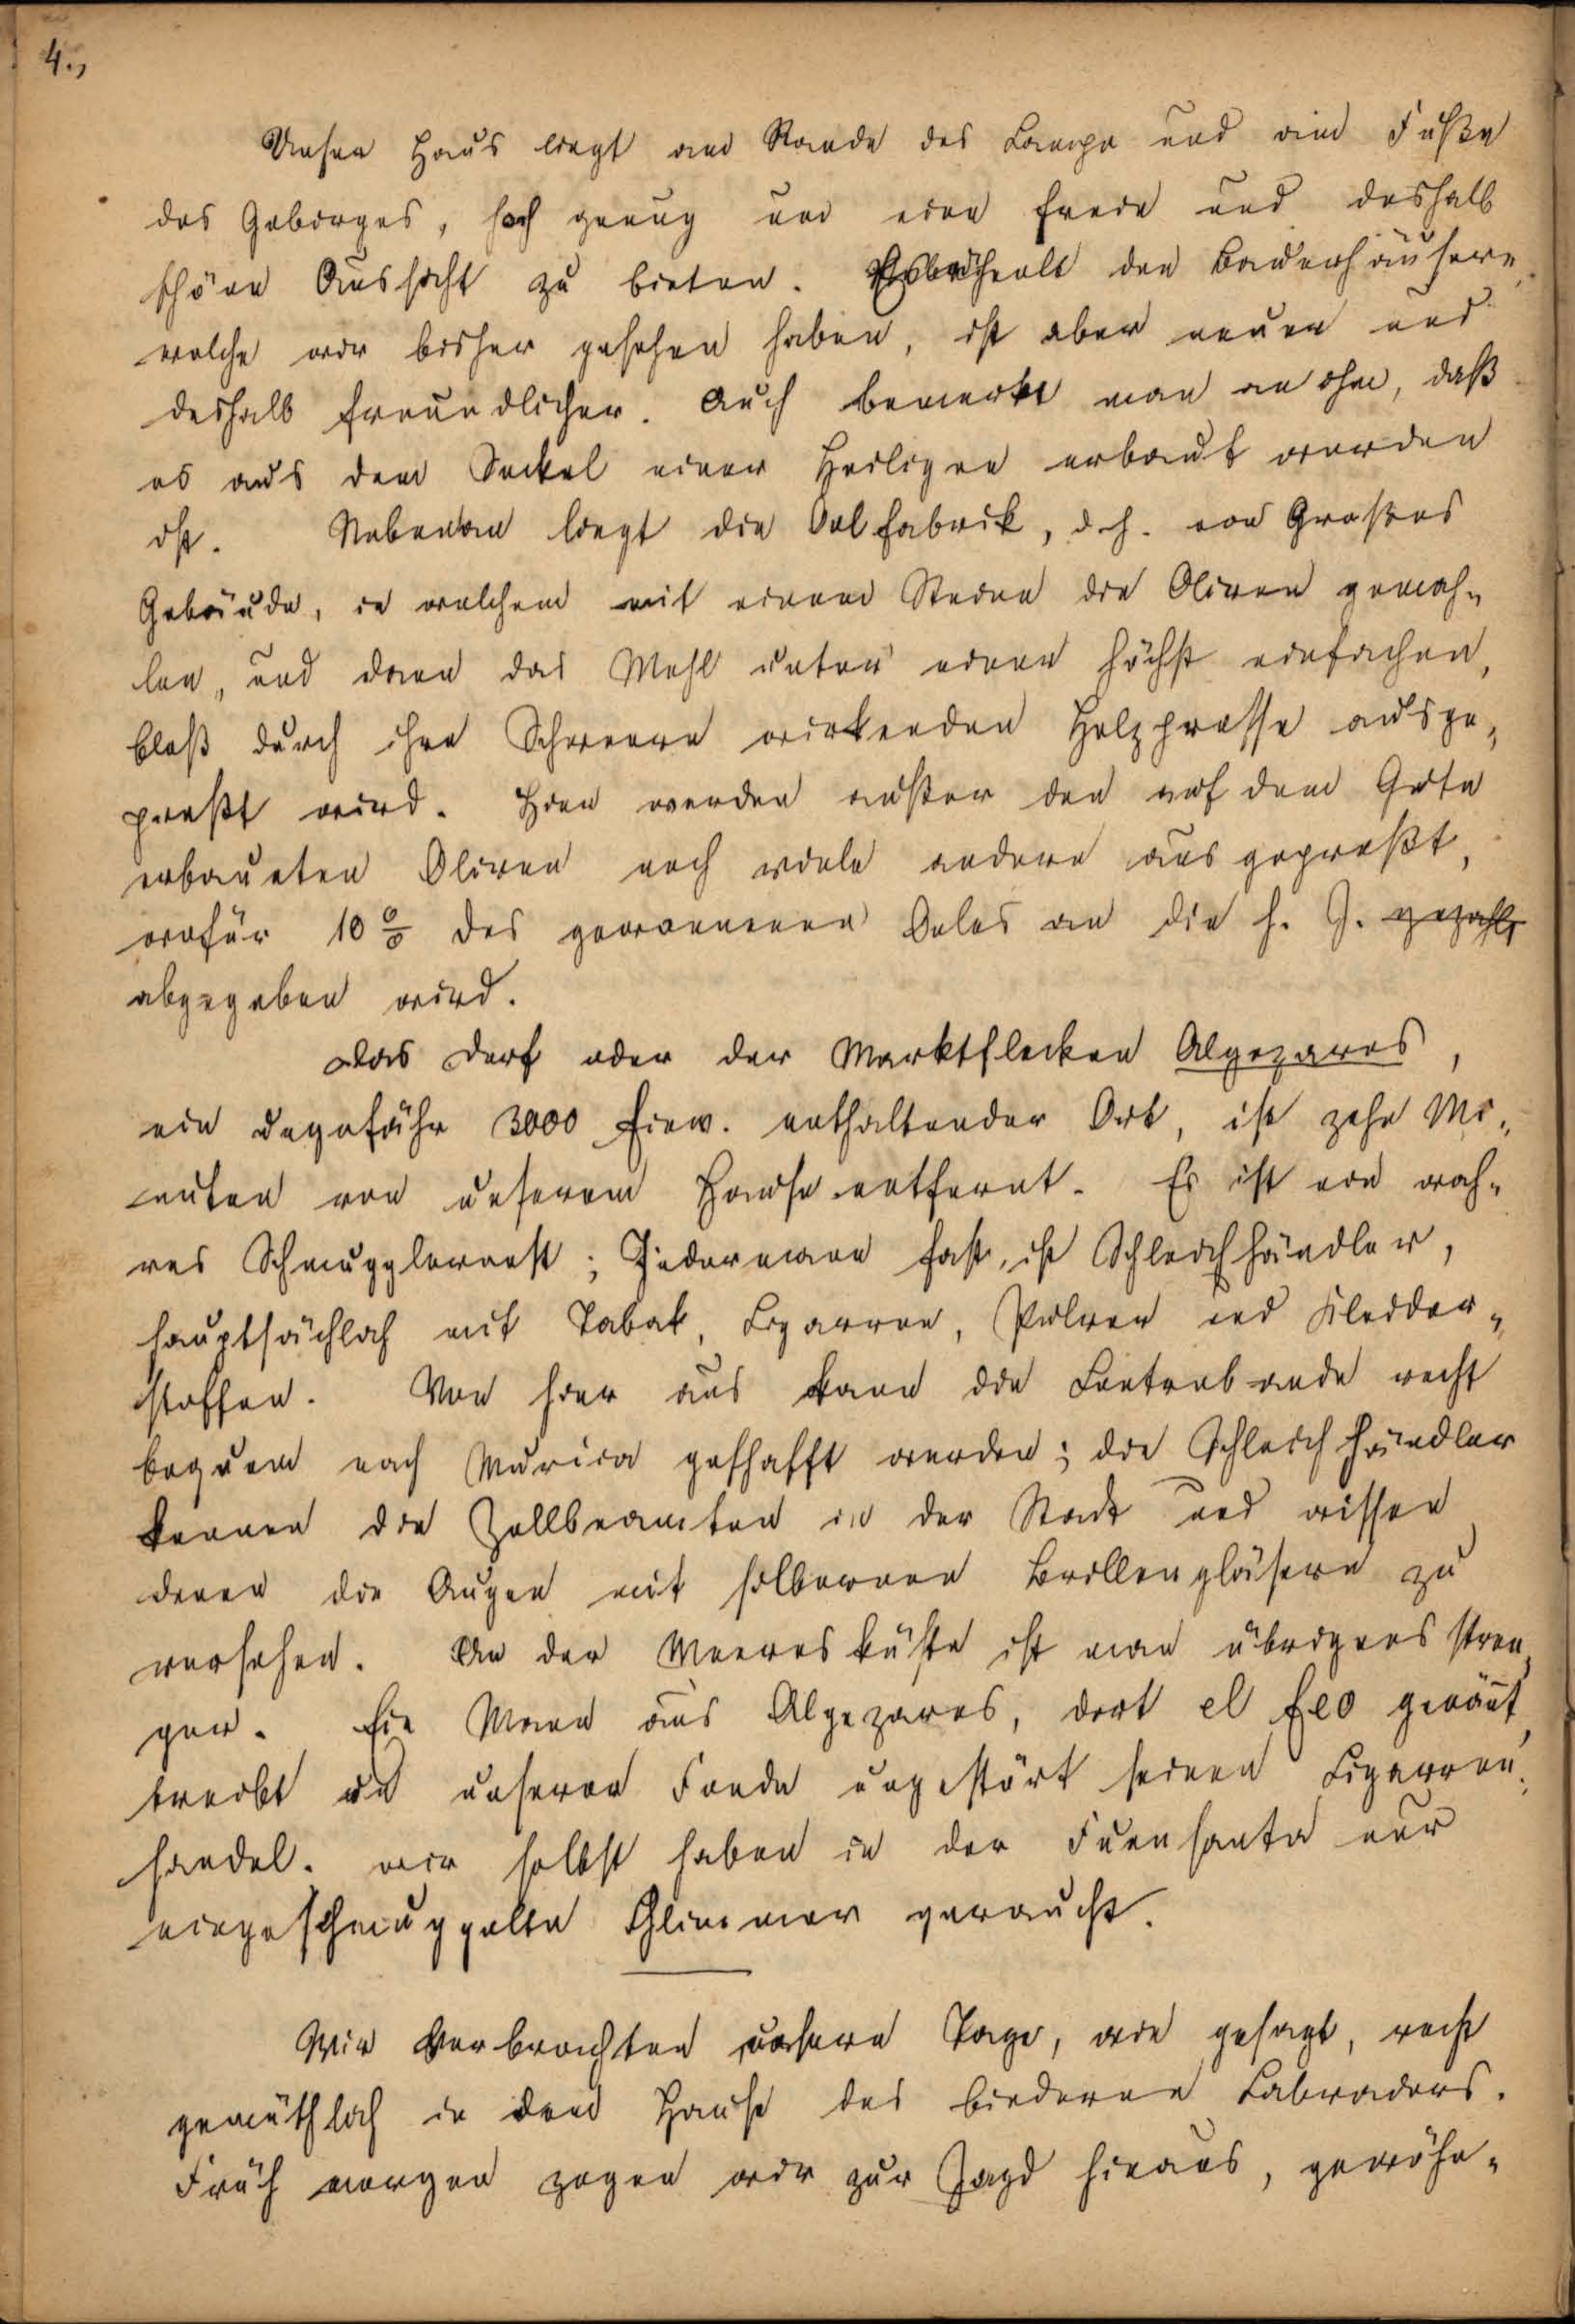 4.,
Unser Haus liegt am Rande des Campo und am Fuße
des Gebirges, hoch genug um eine freie und deshalb
schöne Aussicht zu bieten. Es ähnelt den Bauernhäusern,
welche wir bisher gesehen haben, ist aber neuer und
deshalb freundlicher. Auch bemerkt man an ihm, daß
es aus dem Säckel einer Heiligen erbaut worden
ist. Nebenan liegt die Oelfabrik, d. h. ein Großes
Gebäude, in welchem mit einem Steine die Oliven gemah-
len, und dann das Mehl unter einer höchst einfachen,
bloß durch ihre Schwere wirkenden Holzpresse ausge-
preßt wird. Hier werden außer den auf dem Gute
erbaueten Oliven noch viele andere ausgepreßt,
wofür 10 % des gewonnenen Oeles an die h. J. gezahlt
abgegeben wird.
Das Dorf oder der Marktflecken Algezares,
ein ungefähr 3000 Einw. enthaltender Ort, ist zehn Mi-
nuten von unserem Hause entfernt. Es ist ein wah-
res Schmugglernest; Jedermann fast, ist Schleichhändler,
hauptsächlich mit Tabak, Cigarren, Pulver und Kleider-
stoffen. Von hier aus kann die Contrebande recht
bequem nach Murcia geschafft werden; die Schleichhändler
kennen die Zollbeamten in der Stadt und wissen
denen die Augen mit silbernen Brillengläsern zu
versehen. An der Meeresküste ist man übrigens stren-
ger. Ein Mann aus Algezares, dort el feo genannt,
treibt in unserer Fonda ungestört seinen Cigarren-
handel. wir selbst haben in der Fuensanta nur
eingeschmuggelte Glimmer geraucht.
Wir verbrachten unsere Tage, wie gesagt, recht
gemüthlich in dem Hause des biederen Labradors.
Früh morgen zogen wir zur Jagd hinaus, gewöhn-